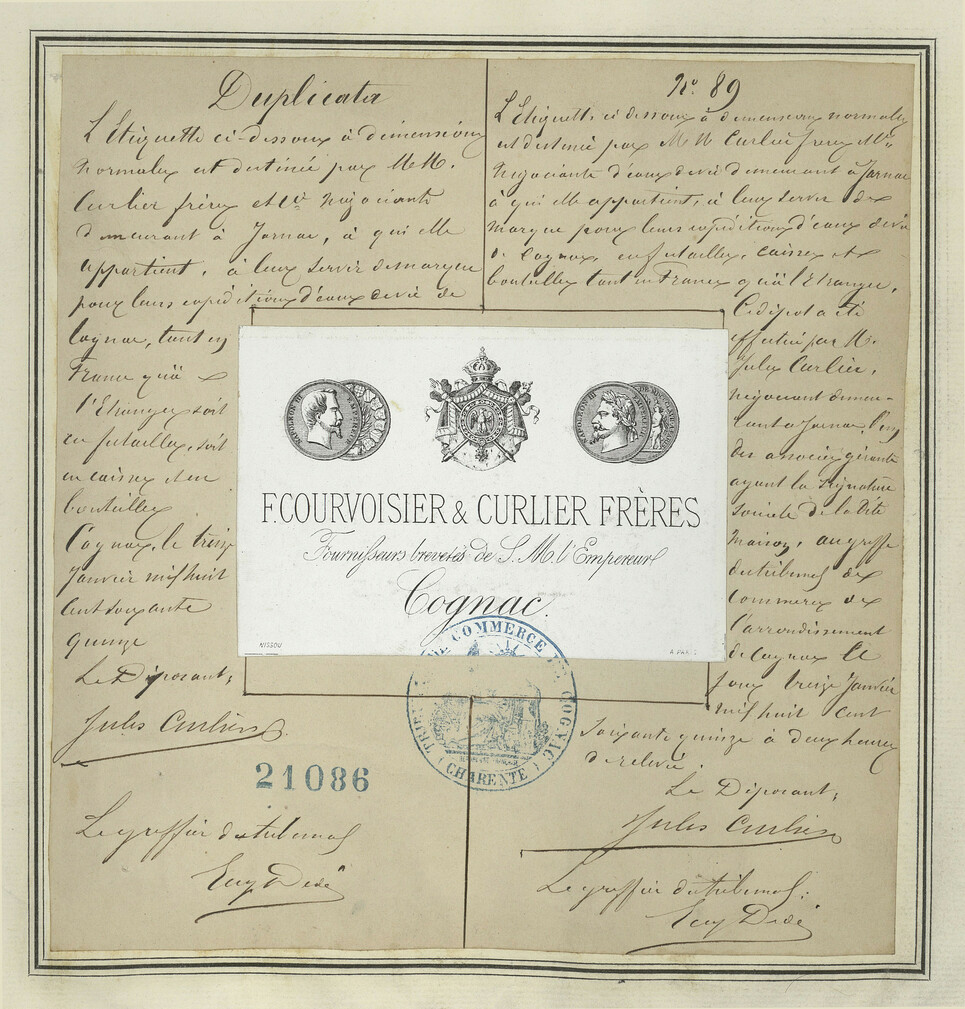 Duplicata
L'Etiquette ci-dessous à dimensions
normales est destinée par MM.
Curlier frères et Cie négociants
demeurant à Jarnac, à qui elle
appartient, à leur servir de marque
pour leurs expéditions d'eaux de vie de
Cognac, tant en
France qu'à
l'Etranger soit
en futailles, soit
en caisses et en
bouteilles
Cognac, le treize
Janvier mil huit
cent soixante
quinze
Le Déposant,
Jules Curlier
21086
Le greffier du tribunal
No. 89
L'Etiquette ci-dessous à dimensions normales
est destinée par MM Curlier frères
négociants d'eaux de vie demeurant à Jarnac
à qui elle appartient, à leur servir de
marque pour leurs expéditions d'eaux de vie
de Cognac, en futailles, caisses et
bouteilles tant en France qu'à l'Etranger.
Ce dépôt a été
effectué par M.
Jules Curlier,
négociant demeu-
rant à Jarnac, l'un
des associés gérants
ayant la signature
sociale de la dite
maison, au greffe
du tribunal de
commerce de
l'arrondissement
de Cognac le
jour treize Janvier
mil huit cent
soixante quinze à deux heures
de relevée.
Le Déposant,
Jules Curlier
Le greffier du tribunal,
NAPOLEON III EMPEREUR
NAPOLEON III EMPEREUR
F. COURVOISIER & CURLIER FRÈRES
Fournisseurs brevetés de S. M. l'Empereur
Cognac.
NISSOU
A PARIS
TRIBUNAL DE COMMERCE DE COGNAC
(CHARENTE)